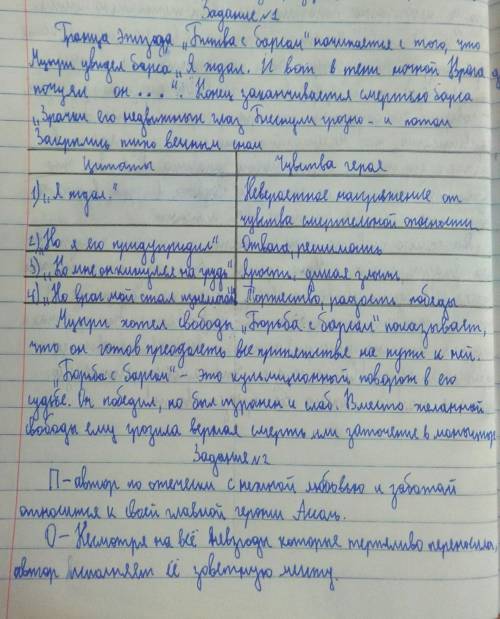 Задание №1
Граница эпизода „Битва с барсом" начинается с того, что
Мцыри увидел барса „Я ждал. И вот в тени ночной Врага
почуял он ...". Конец заканчивается смертью барса
„Зрачки его недвижных глаз Блеснули грозно - и потом
Закрылись тихо вечным сном
Цитаты Чувства героя
1) „Я ждал." Невероятное напряжение от
чувства смертельной опасности
2) „Но я его предупредил" Отвага, решимость
3) „Но мне он кинулся на грудь" Ярость, дикая злость
4) „Но враг мой стал изнемогать" Торжество, радость победы
Мцыри хотел свободы „Борьба с барсом" показывает,
что он готов преодолеть все препятствие на пути к ней.
„Борьба с барсом" - это кульмиционный поворот в его
судьбе. Он победил, но был изранен и слаб. Вместо желанной
свободы ему грозила верная смерть или заточение в монастыр
Задание №2
П - автор по отечески с нежной любовью и заботай
относится к своей главной героини Ассоль.
О - Несмотря на всё невзгоды которые терпеливо переносила,
автор исполняет её заветную мечту.